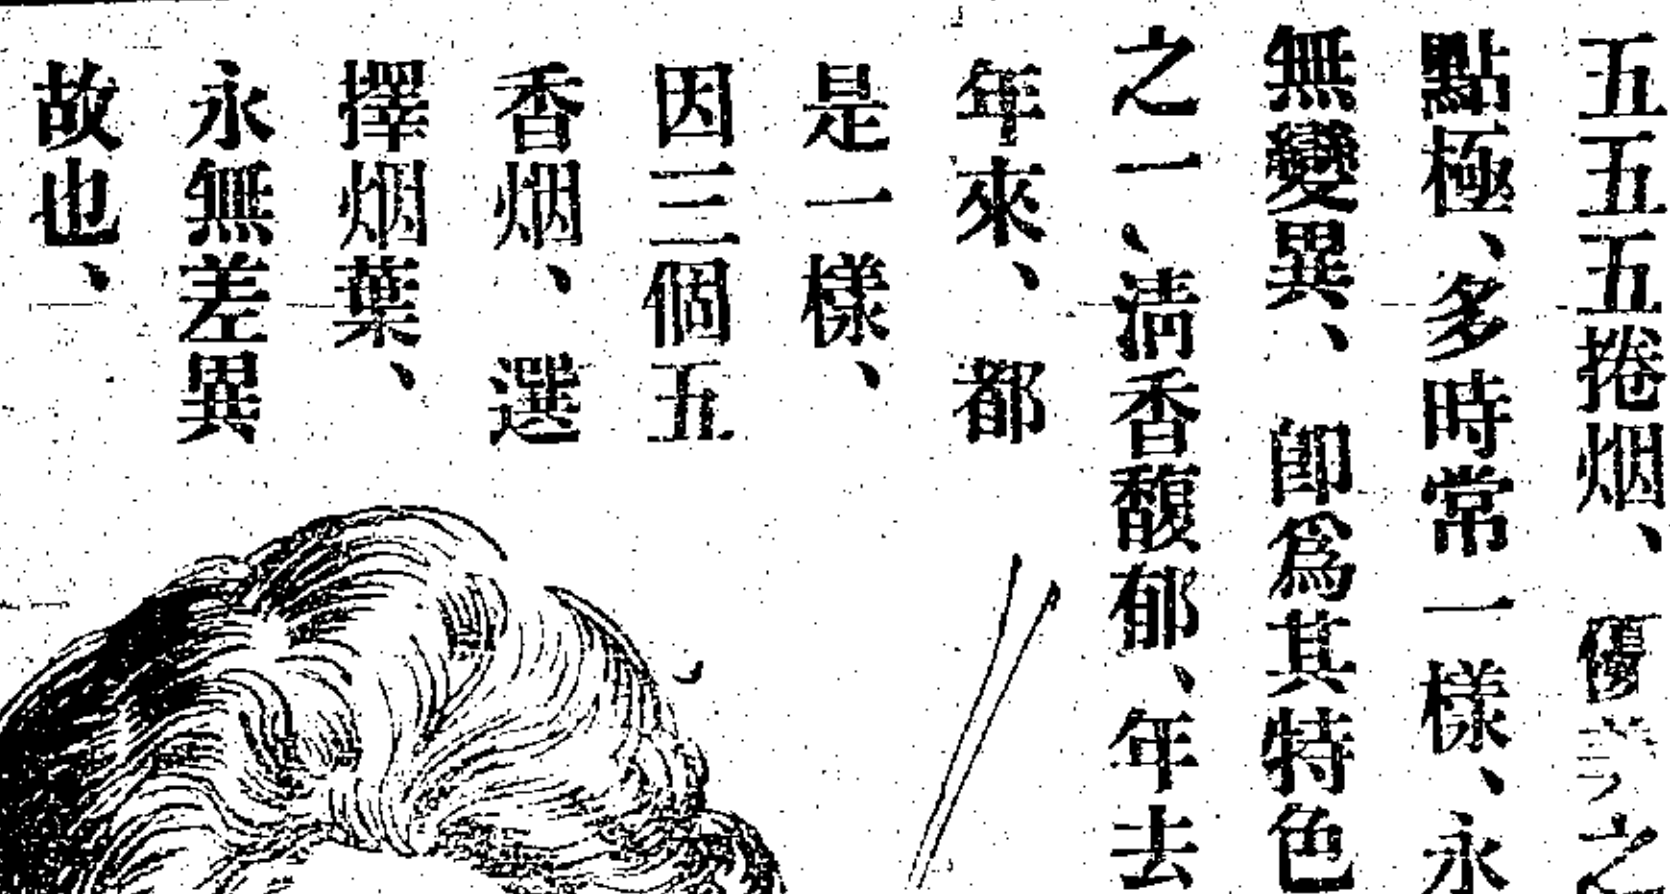 五五五捲烟、優美之
點極、多時常一樣、永
無變異、卽爲其特色
之一、淸香馥郁、年去
年來、都
是一樣、
因三個五
香烟、選
擇烟葉、
永無差異
故也、